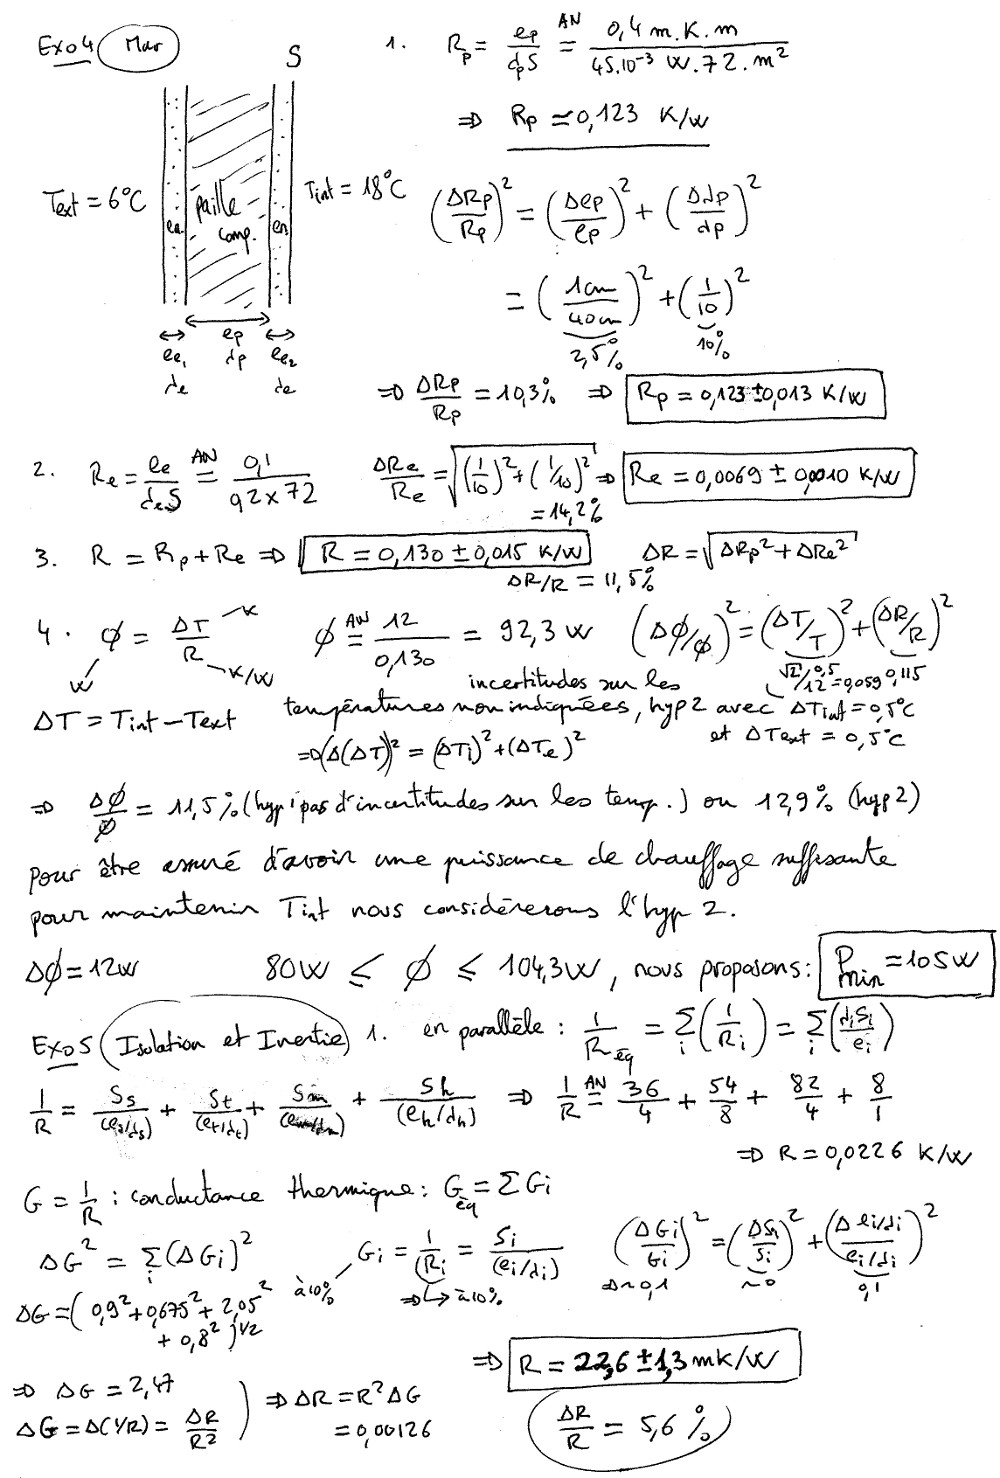 Exo4 Mur
S
1. Rp = ep/λpS =^AN 0,4 m.K.m / 45.10⁻³ W.72.m²
⇒ Rp ≃ 0,123 K/W
Text = 6°C
paille comp.
en
en
Tint = 18°C
ee₁ ep ee₂
λe λp λe
(ΔRp/Rp)² = (Δep/ep)² + (Δλp/λp)²
= (1cm/40cm)² + (1/10)²
2,5% 10%
⇒ ΔRp/Rp = 10,3% ⇒ Rp = 0,123 ± 0,013 K/W
2. Re = ee/λeS =^AN 0,1/0,2×72 ΔRe/Re = √((1/10)² + (1/10)²) ⇒ Re = 0,0069 ± 0,0010 K/W
= 14,2%
3. R = Rp + Re ⇒ R = 0,130 ± 0,015 K/W ΔR = √(ΔRp² + ΔRe²)
ΔR/R = 11,5%
4. ϕ = ΔT/R K K/W W ϕ =^AN 12/0,130 = 92,3 W (Δϕ/ϕ)² = (ΔT/T)² + (ΔR/R)²
√2/12 0,5 = 0,059 0,115
ΔT = Tint − Text incertitudes sur les
températures non indiquées, hyp2 avec ΔTint = 0,5°C
et ΔText = 0,5°C
⇒ (Δ(ΔT))² = (ΔTi)² + (ΔTe)²
⇒ Δϕ/ϕ = 11,5% (hyp1 pas d'incertitudes sur les temp.) ou 12,9% (hyp2)
pour être assuré d'avoir une puissance de chauffage suffisante
pour maintenir Tint nous considérerons l'hyp 2.
Δϕ = 12W 80W ≤ ϕ ≤ 104,3W, nous proposons: Pmin = 105W
Exo5 Isolation et Inertie 1. en parallèle : 1/Réq = Σi (1/Ri) = Σi (λiSi/ei)
1/R = Ss/(es/λs) + St/(et/λt) + Sm/(em/λm) + Sh/(eh/λh) ⇒ 1/R =^AN 36/4 + 54/8 + 82/4 + 8/1
⇒ R = 0,0226 K/W
G = 1/R : conductance thermique : Géq = ΣGi
ΔG² = Σi (ΔGi)² Gi = 1/Ri = Si/(ei/λi) (ΔGi/Gi)² = (ΔSi/Si)² + (Δei/λi / ei/λi)²
à 10% ⇒ à 10% ⇒ ~0,1 ~0 0,1
ΔG = (0,9² + 0,675² + 2,05²
+ 0,8²)^1/2
⇒ R = 22,6 ± 1,3 mK/W
⇒ ΔG = 2,47
ΔG = Δ(1/R) = ΔR/R² ⇒ ΔR = R²ΔG
= 0,00126
ΔR/R = 5,6 %